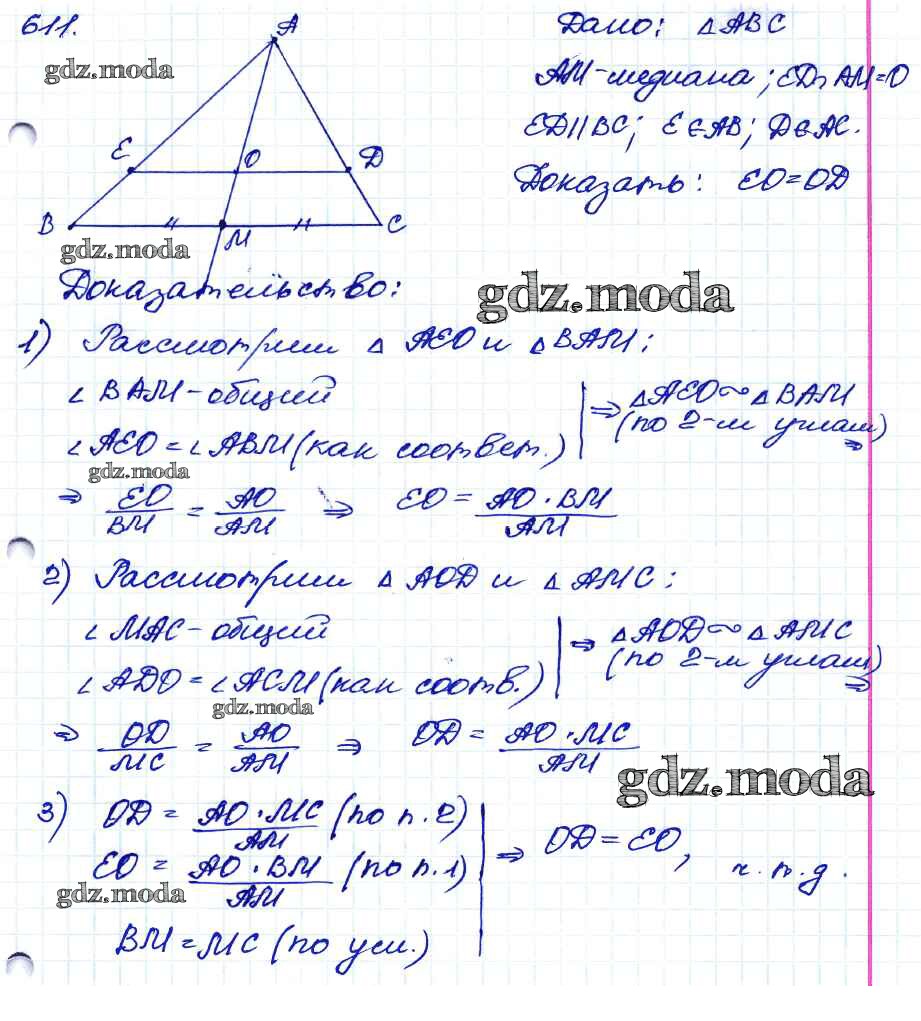 611.
A
Дано: △ABC
gdz.moda
AM-медиана; ED∩AM=O
ED||BC; E∈AB; D∈AC.
E O D
Доказать: EO=OD
B M C
gdz.moda
Доказательство:
gdz.moda
1) Рассмотрим △ AEO и △BAM;
∠ BAM - общий
∠ AEO = ∠ ABM (как соответ.)
⇒ △AEO ∼ △BAM
(по 2-м углам)
⇒
gdz.moda
⇒ EO/BM = AO/AM ⇒ EO = AO · BM/AM
2) Рассмотрим △ AOD и △ AMC;
∠ MAC - общий
∠ ADO = ∠ ACM (как соотв.)
⇒ △AOD ∼ △AMC
(по 2-м углам)
⇒
gdz.moda
⇒ OD/MC = AO/AM ⇒ OD = AO · MC/AM
gdz.moda
3) OD = AO · MC/AM (по п. 2)
EO = AO · BM/AM (по п. 1)
gdz.moda
BM = MC (по усл.)
⇒ OD = EO,
ч. т. д.